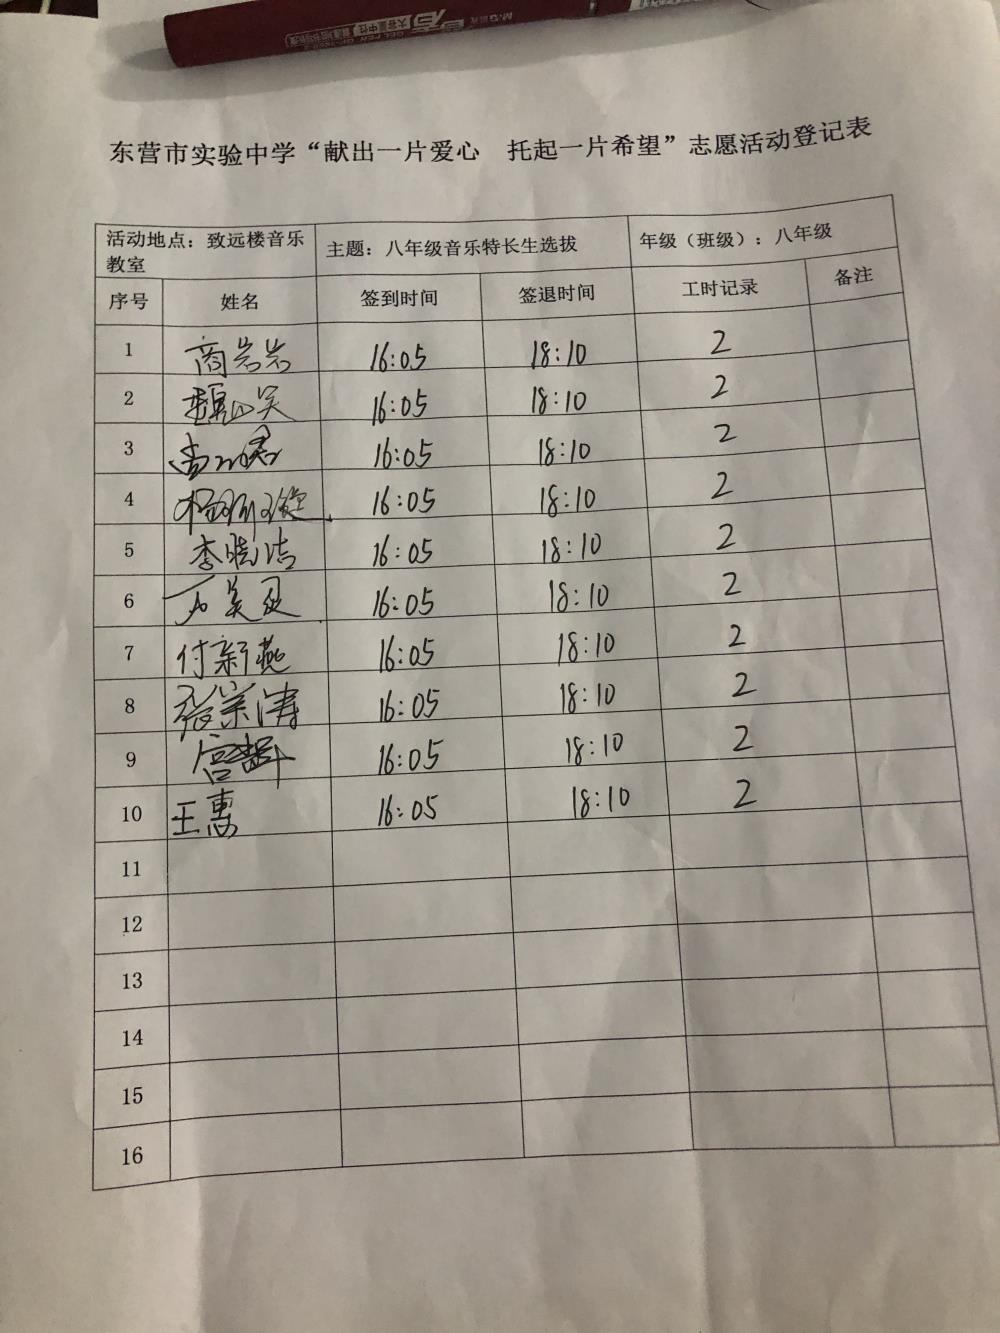 M&G
大容量中性
GEL PEN
东营市实验中学“献出一片爱心 托起一片希望”志愿活动登记表
活动地点：致远楼音乐教室 主题：八年级音乐特长生选拔 年级（班级）：八年级
序号 姓名 签到时间 签退时间 工时记录 备注
1 商岩岩 16:05 18:10 2
2 16:05 18:10 2
3 16:05 18:10 2
4 16:05 18:10 2
5 李晓洁 16:05 18:10 2
6 16:05 18:10 2
7 付新燕 16:05 18:10 2
8 张荣涛 16:05 18:10 2
9 16:05 18:10 2
10 王惠 16:05 18:10 2
11
12
13
14
15
16